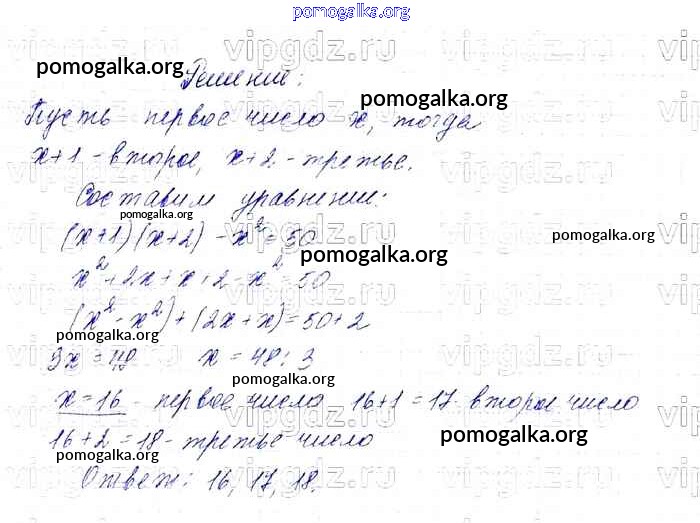 pomogalka.org
vipgdz.ru vipgdz.ru
pomogalka.org Решение:
pomogalka.org
Пусть первое число x, тогда
x+1 - второе, x+2 - третье.
Составим уравнение:
pomogalka.org
(x+1)(x+2) - x² = 50
pomogalka.org
pomogalka.org
x²+2x+x+2-x²=50
(x²-x²)+(2x+x)=50+2
pomogalka.org
3x = 48 x = 48:3
pomogalka.org
x=16 - первое число 16+1=17 второе число
16+2=18 - третье число
pomogalka.org
pomogalka.org
Ответ: 16, 17, 18.